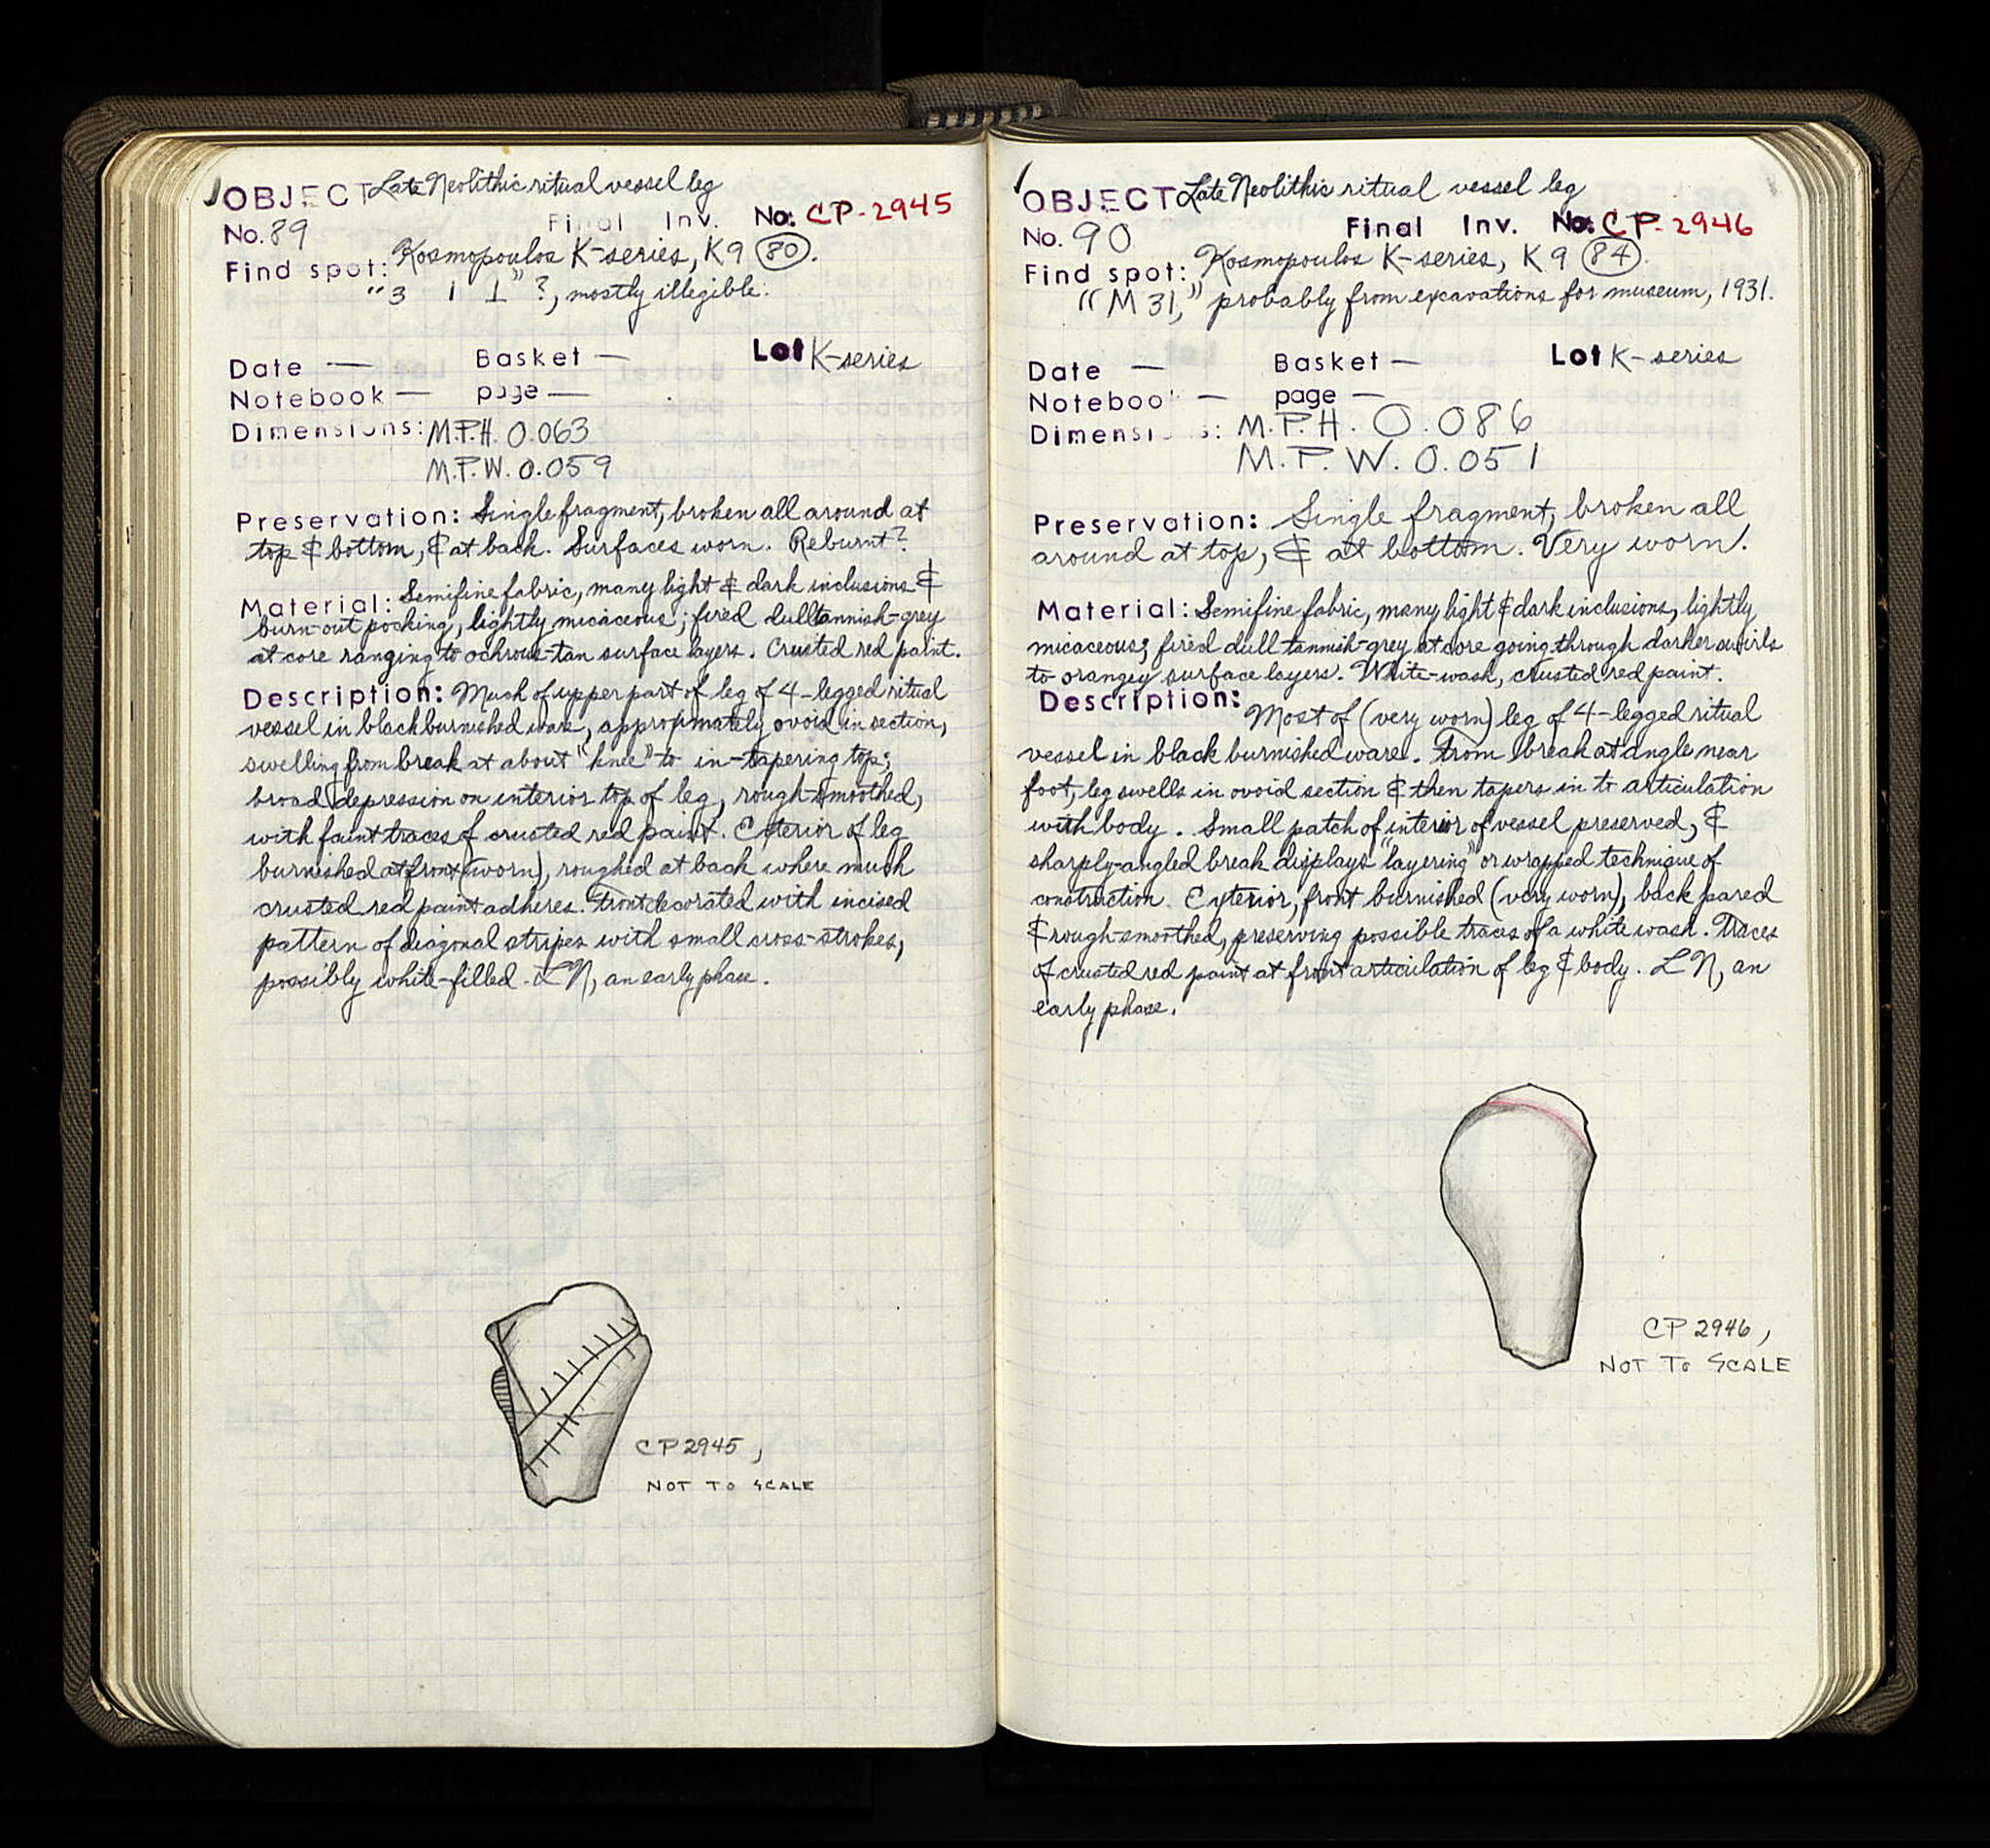 OBJECT Late Neolithic ritual vessel leg
No. 89 Final Inv. No: CP-2945
Find spot: Kosmopoulos K-series, K9 (80).
"3 1 ⊥" ?, mostly illegible.
Date — Basket — Lot K-series
Notebook — page —
Dimensions: M.P.H. 0.063
M.P.W. 0.059
Preservation: Single fragment, broken all around at
top & bottom, & at back. Surfaces worn. Reburnt?
Material: Semifine fabric, many light & dark inclusions &
burn-out pocking, lightly micaceous; fired dull tannish-grey
at core ranging to ochrous-tan surface layers. Crusted red paint.
Description: Much of upper part of leg of 4-legged ritual
vessel in black burnished ware, approximately ovoid in section,
swelling from break at about "knee" to in-tapering top;
broad depression on interior top of leg, rough-smoothed,
with faint traces of crusted red paint. Exterior of leg
burnished at front (worn), roughed at back where much
crusted red paint adheres. Front decorated with incised
pattern of diagonal stripes with small cross-strokes,
possibly white-filled. LN, an early phase.
CP 2945,
NOT TO SCALE
OBJECT Late Neolithic ritual vessel leg
No. 90 Final Inv. No: CP-2946
Find spot: Kosmopoulos K-series, K9 (84).
"M 31," probably from excavations for museum, 1931.
Date — Basket — Lot K-series
Notebook — page —
Dimensions: M.P.H. 0.086
M.P.W. 0.051
Preservation: Single fragment, broken all
around at top, & at bottom. Very worn.
Material: Semifine fabric, many light & dark inclusions, lightly
micaceous; fired dull tannish-grey at core going through darker swirls
to orangey surface layers. White-wash, crusted red paint.
Description: Most of (very worn) leg of 4-legged ritual
vessel in black burnished ware. From break at angle near
foot, leg swells in ovoid section & then tapers in to articulation
with body. Small patch of interior of vessel preserved, &
sharply-angled break displays "layering" or wrapped technique of
construction. Exterior, front burnished (very worn), back pared
& rough-smoothed, preserving possible traces of a white wash. Traces
of crusted red paint at front articulation of leg & body. LN, an
early phase.
CP 2946,
NOT TO SCALE